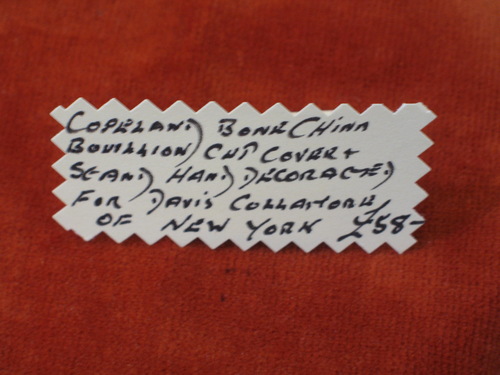 COPELAND BONE CHINA
BOUILLION CUP COVER +
STAND HAND DECORATED
FOR DAVIS COLLAMORE
OF NEW YORK £58-